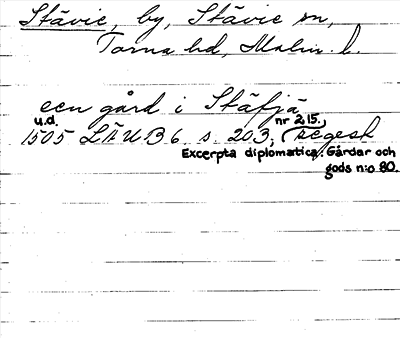 Stävie, by, Stävie sn,
Torna hd, Malm. l.
een gård i Stäfjä
u.d. nr 215.,
1505 LÄUB 6 s. 203, (regest
Excerpta diplomatica, Gårdar och
gods n:o 80.